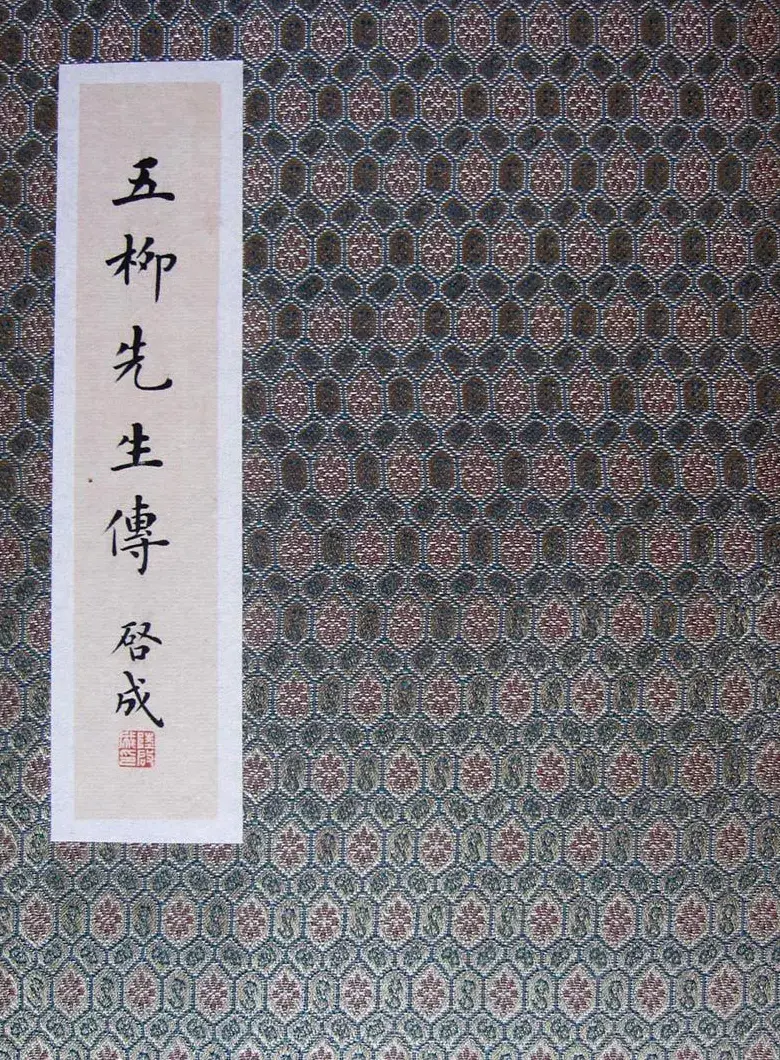 五柳先生傳
啓成